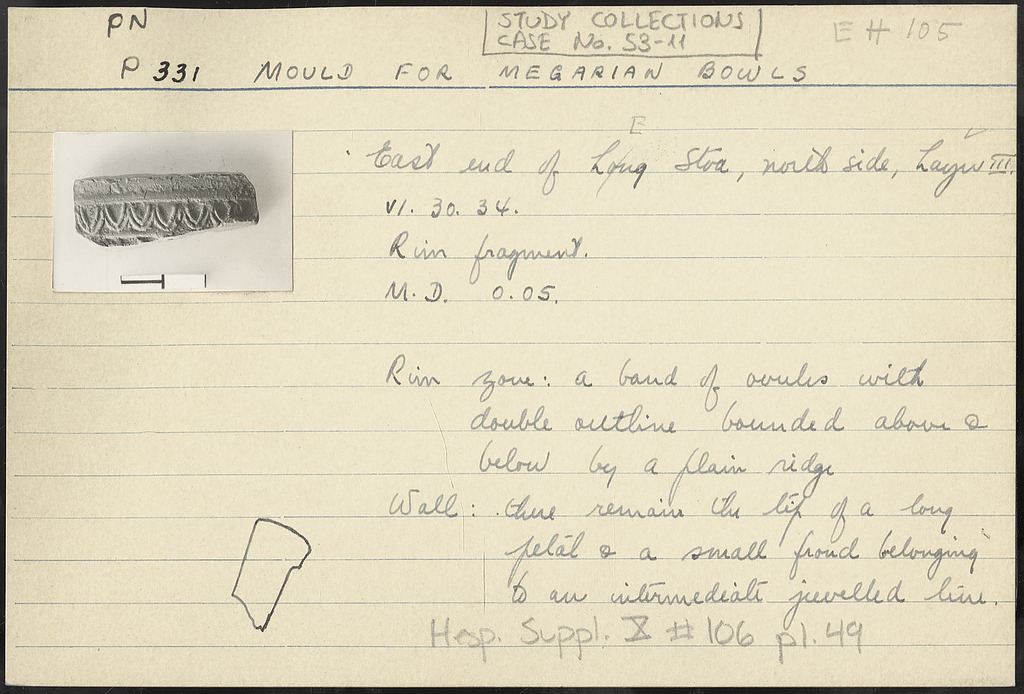 PN
STUDY COLLECTIONS
CASE No. 53-11
E # 105
P 331 MOULD FOR MEGARIAN BOWLS
E
East end of Long Stoa, north side, Layer III.
VI. 30. 34.
Rim fragment.
M.D. 0.05.
Rim zone: a band of ovules with
double outline bounded above &
below by a plain ridge
Wall: there remain the tip of a long
petal & a small frond belonging
to an intermediate jewelled line.
Hesp. Suppl. X # 106 pl. 49